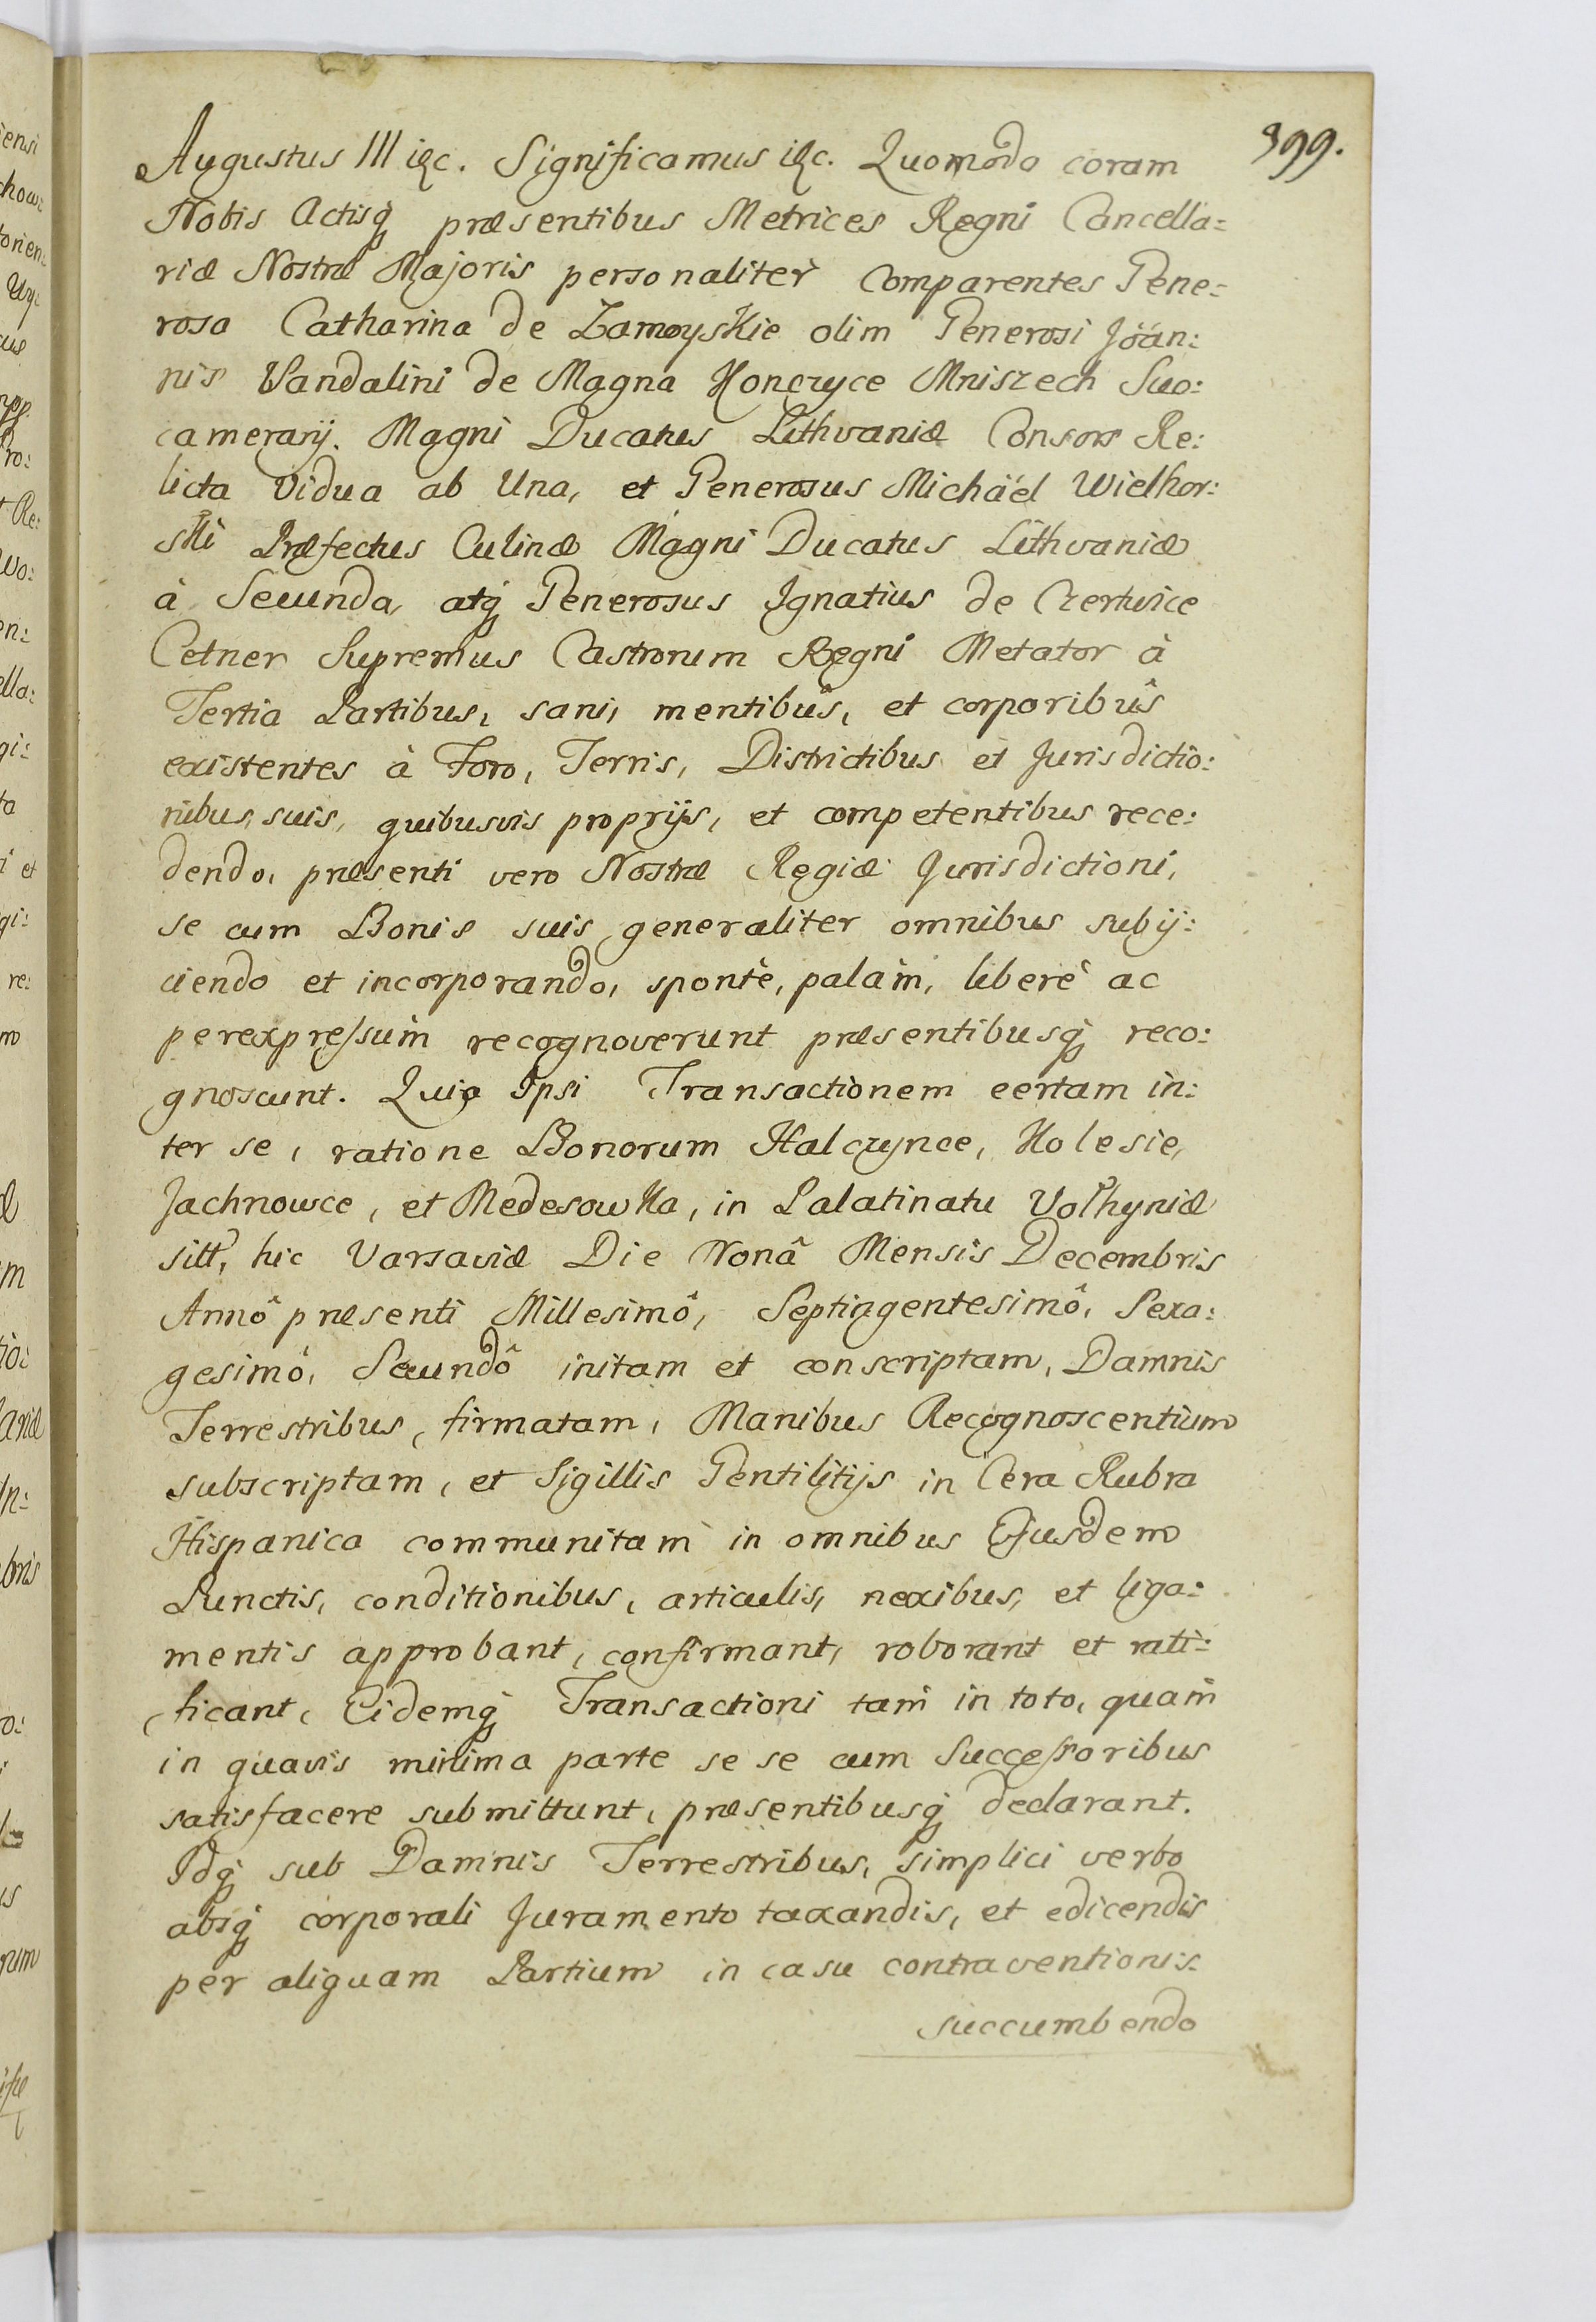 399.
Augustus III i&c. Significamus i&c. Quomodo coram
Nobis Actisq́ præsentibus Metrices Regni Cancella=
riæ Nostræ Majoris personaliter Comparentes Gene=
rosa Catharina de Zamoyskie olim Generosi Joan:
nis Vandalini de Magna Konczyce Mniszech Suc:
camerarij. Magni Ducatus Lithvaniæ Consors Re:
licta Vidua ab Una, et Generosus Michaël Wielhor:
ski Præfectus Culinæ Magni Ducatus Lithvaniæ
à Secunda, atq́ Generosus Ignatius de Czertwice
Cetner Supremus Castrorum Regni Metator à
Tertia Partibus, sani, mentibûs, et corporibûs
existentes à Foro, Terris, Districtibus et Jurisdictio:
nibus, suis, quibusvis proprijs, et competentibus rece:
dendo, præsenti vero Nostræ Regiæ Jurisdictioni,
se cum Bonis suis generaliter omnibus subij:
ciendo et incorporando, spontè, palàm, liberè ac
perexpressùm recognoverunt præsentibusq́ reco:
gnoscunt. Quia Ipsi Transactionem certam in:
ter se, ratione Bonorum Halczynce, Kolesie,
Jachnowce, et Medesowka, in Palatinatu Volhyniæ
sitt, hic Varsaviæ Die Nonâ Mensis Decembris
Annô præsenti Millesimô, Septingentesimô, Sexa:
gesimô, Secundô initam et conscriptam, Damnis
Terrestribus, firmatam, Manibus Recognoscentium
subscriptam, et Sigillis Gentilitijs in Cera Rubra
Hispanica communitam in omnibus Ejusdem
Punctis, conditionibus, articulis, nexibus, et liga:
mentis approbant, confirmant, roborant et rati:
ficant, Eidemq́ Transactioni tam in toto, quam
in quavis minima parte se se cum Successoribus
satisfacere submittunt, præsentibusq́ declarant.
Idq́ sub Damnis Terrestribus, simplici verbo
absq́ corporali Juramento taxandis, et edicendis
per aliquam Partium in casu contraventionis
succumbendo